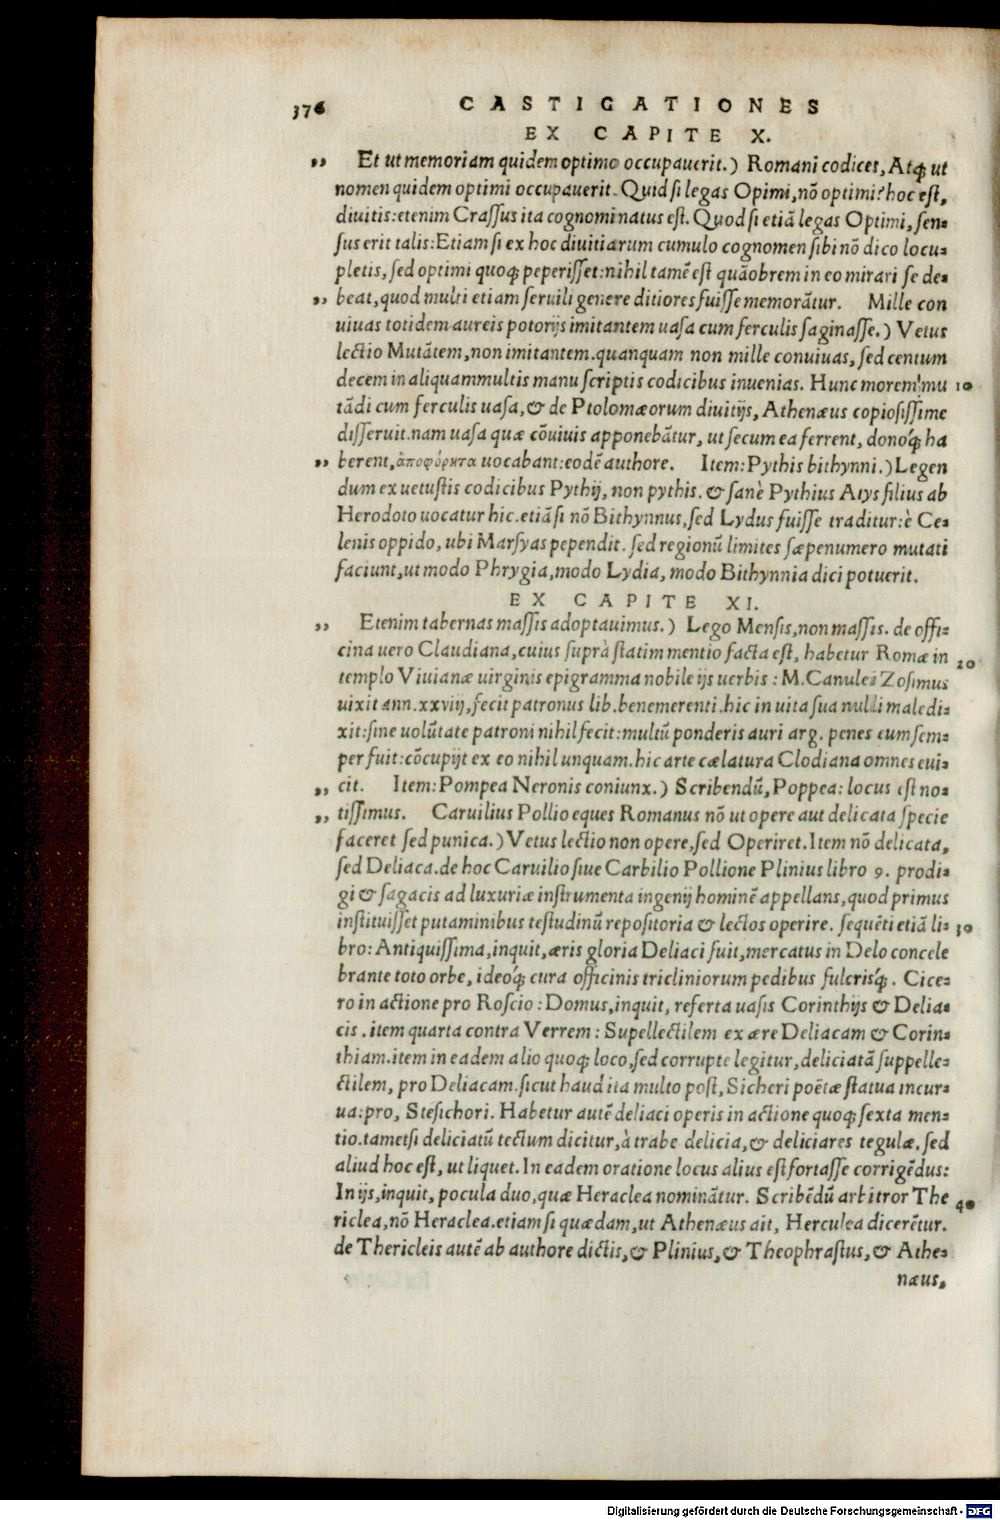 376 CASTIGATIONES
EX CAPITE X.
„ Et ut memoriam quidem optimo occupauerit.) Romani codices, Atq; ut
nomen quidem optimi occupauerit. Quid si legas Opimi, nō optimi? hoc est,
diuitis: etenim Crassus ita cognominatus est. Quod si etiā legas Optimi, sen-
sus erit talis: Etiam si ex hoc diuitiarum cumulo cognomen sibi nō dico locu-
pletis, sed optimi quoq; peperisset: nihil tamē est quāobrem in eo mirari se de-
„ beat, quod multi etiam seruili genere ditiores fuisse memorātur. Mille con
uiuas totidem aureis potorijs imitantem uasa cum ferculis saginasse.) Vetus
lectio Mutātem, non imitantem. quanquam non mille conuiuas, sed centum
decem in aliquammultis manu scriptis codicibus inuenias. Hunc morem mu 10
tādi cum ferculis uasa, & de Ptolomæorum diuitijs, Athenæus copiosissime
disseruit. nam uasa quæ cōuiuis apponebātur, ut secum ea ferrent, donoq́; ha
„ berent, ἀποφόρητα uocabant: eodē authore. Item: Pythis bithynni.) Legen
dum ex uetustis codicibus Pythij, non pythis. & sanè Pythius Atys filius ab
Herodoto uocatur hic. etiā si nō Bithynnus, sed Lydus fuisse traditur: è Ce-
lenis oppido, ubi Marsyas pependit. sed regionū limites sæpenumero mutati
faciunt, ut modo Phrygia, modo Lydia, modo Bithynnia dici potuerit.
EX CAPITE XI.
„ Etenim tabernas massis adoptauimus.) Lego Mensis, non massis. de offi-
cina uero Claudiana, cuius suprà statim mentio facta est, habetur Romæ in 20
templo Viuianæ uirginis epigramma nobile ijs uerbis: M. Canulei Zosimus
uixit ann. xxviij, fecit patronus lib. benemerenti. hic in uita sua nulli maledi-
xit: sine uolūtate patroni nihil fecit: multū ponderis auri arg. penes eum sem-
per fuit: cōcupijt ex eo nihil unquam. hic arte cælatura Clodiana omnes eui-
„ cit. Item: Pompea Neronis coniunx.) Scribendū, Poppea: locus est no-
„ tissimus. Caruilius Pollio eques Romanus nō ut opere aut delicata specie
faceret sed punica.) Vetus lectio non opere, sed Operiret. Item nō delicata,
sed Deliaca. de hoc Caruilio siue Carbilio Pollione Plinius libro 9. prodi-
gi & sagacis ad luxuriæ instrumenta ingenij hominē appellans, quod primus
instituisset putaminibus testudinū repositoria & lectos operire. sequēti etiā li- 30
bro: Antiquissima, inquit, æris gloria Deliaci fuit, mercatus in Delo concele
brante toto orbe, ideoq́; cura officinis tricliniorum pedibus fulcrisq́;. Cice-
ro in actione pro Roscio: Domus, inquit, referta uasis Corinthijs & Delia-
cis. item quarta contra Verrem: Supellectilem ex ære Deliacam & Corin-
thiam. item in eadem alio quoq; loco, sed corrupte legitur, deliciatā suppelle-
ctilem, pro Deliacam. sicut haud ita multo post, Sicheri poëtæ statua incur-
ua: pro, Stesichori. Habetur autē deliaci operis in actione quoq; sexta men-
tio. tametsi deliciatū tectum dicitur, à trabe delicia, & deliciares tegulæ. sed
aliud hoc est, ut liquet. In eadem oratione locus alius est fortasse corrigēdus:
In ijs, inquit, pocula duo, quæ Heraclea nominātur. Scribēdū arbitror The 40
riclea, nō Heraclea. etiam si quædam, ut Athenæus ait, Herculea dicerētur.
de Thericleis autē ab authore dictis, & Plinius, & Theophrastus, & Athe-
næus,
Digitalisierung gefördert durch die Deutsche Forschungsgemeinschaft - DFG